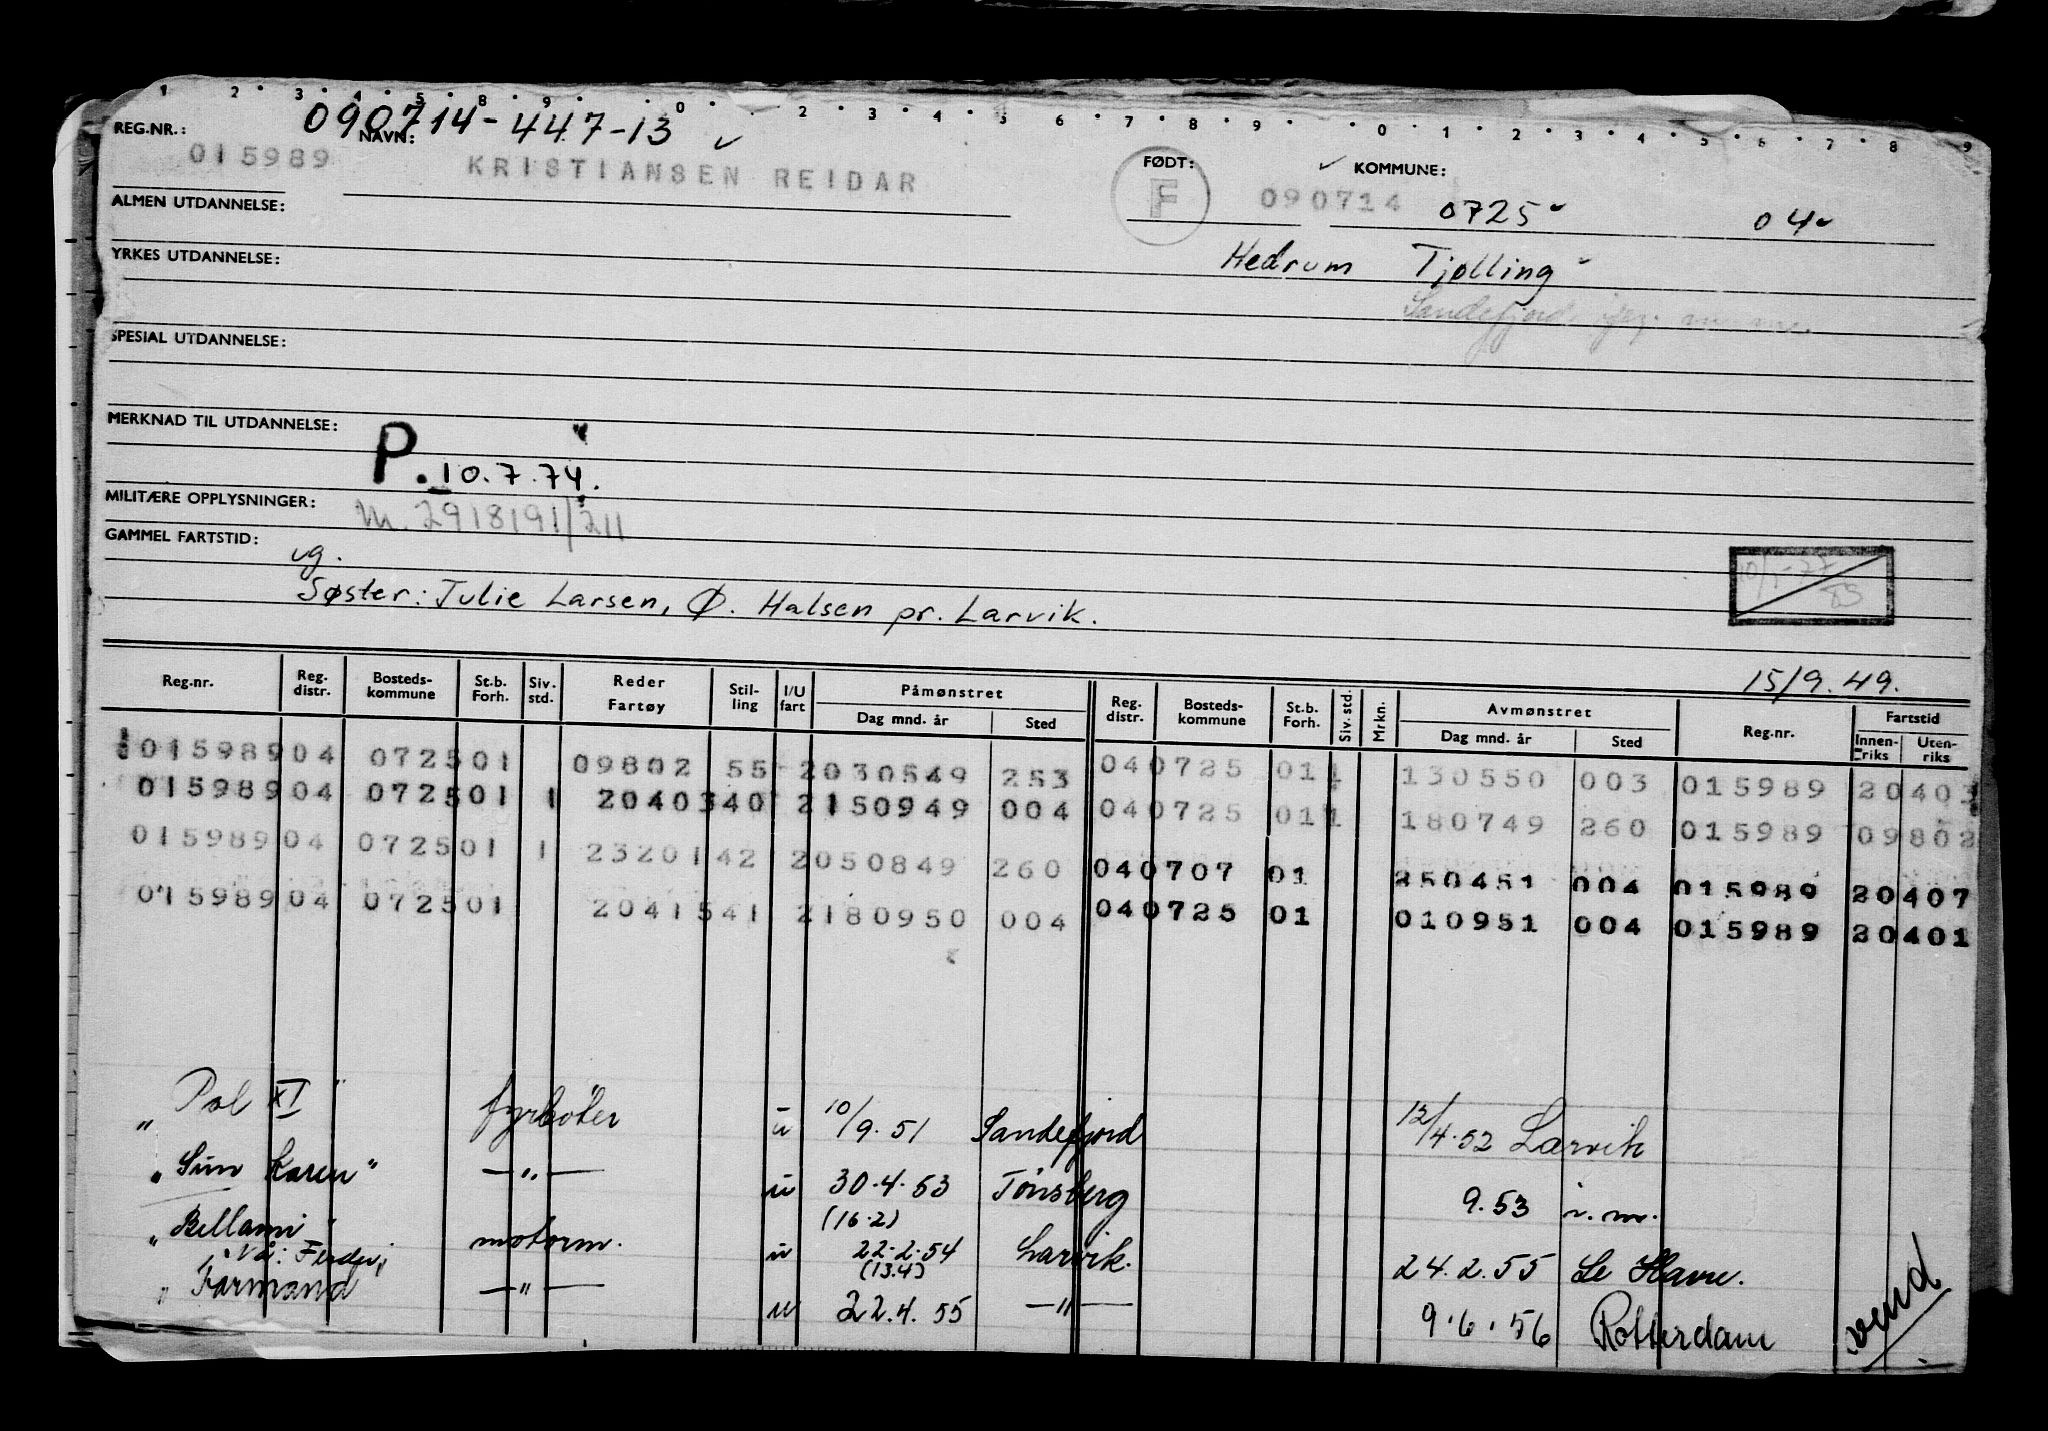 1 2 3 4 5 8 9 0 2 3 4 5 6 7 8 9 0 1 2 3 4 5 6 7 8 9
REG.NR.: 090714-447-13
NAVN: FØDT: KOMMUNE:
015989 KRISTIANSEN REIDAR F 090714 0725 04
ALMEN UTDANNELSE:
YRKES UTDANNELSE: Hedrum Tjølling
Sandefjord
SPESIAL UTDANNELSE:
MERKNAD TIL UTDANNELSE:
P. 10.7.74.
MILITÆRE OPPLYSNINGER:
M. 2918191/211
GAMMEL FARTSTID:
ug.
Søster: Julie Larsen, Ø. Halsen pr. Larvik.
15/9.49.
Reg.nr. Reg. distr. Bosteds-kommune St.b. Forh. Siv. std. Reder Fartøy Stil-ling I/U fart Påmønstret Dag mnd. år Sted Reg. distr. Bosteds-kommune St.b. Forh. Siv. std. Mrkn. Avmønstret Dag mnd. år Sted Reg.nr. Fartstid Innen-riks Uten-riks
015989 04 0725 01 09802 55 2 030549 253 04 0725 01 1 130550 003 015989 20403
015989 04 0725 01 1 20403 40 2 150949 004 04 0725 01 1 180749 260 015989 09802
015989 04 0725 01 1 23201 42 2 050849 260 04 0707 01 250451 004 015989 20407
015989 04 0725 01 20415 41 2 180950 004 04 0725 01 010951 004 015989 20401
"Pol XI" fyrbøter u 10/9.51 Sandefjord 12/4.52 Larvik
"Sun Karen" —"— u 30.4.53 Tønsberg 9.53 i.m.
(16.2)
"Bellami" motorm. u 22.2.54 Larvik. 24.2.55 Le Havre.
(13.4)
"Formand —"— u 22.4.55 —"— 9.6.56 Rotterdam
vend